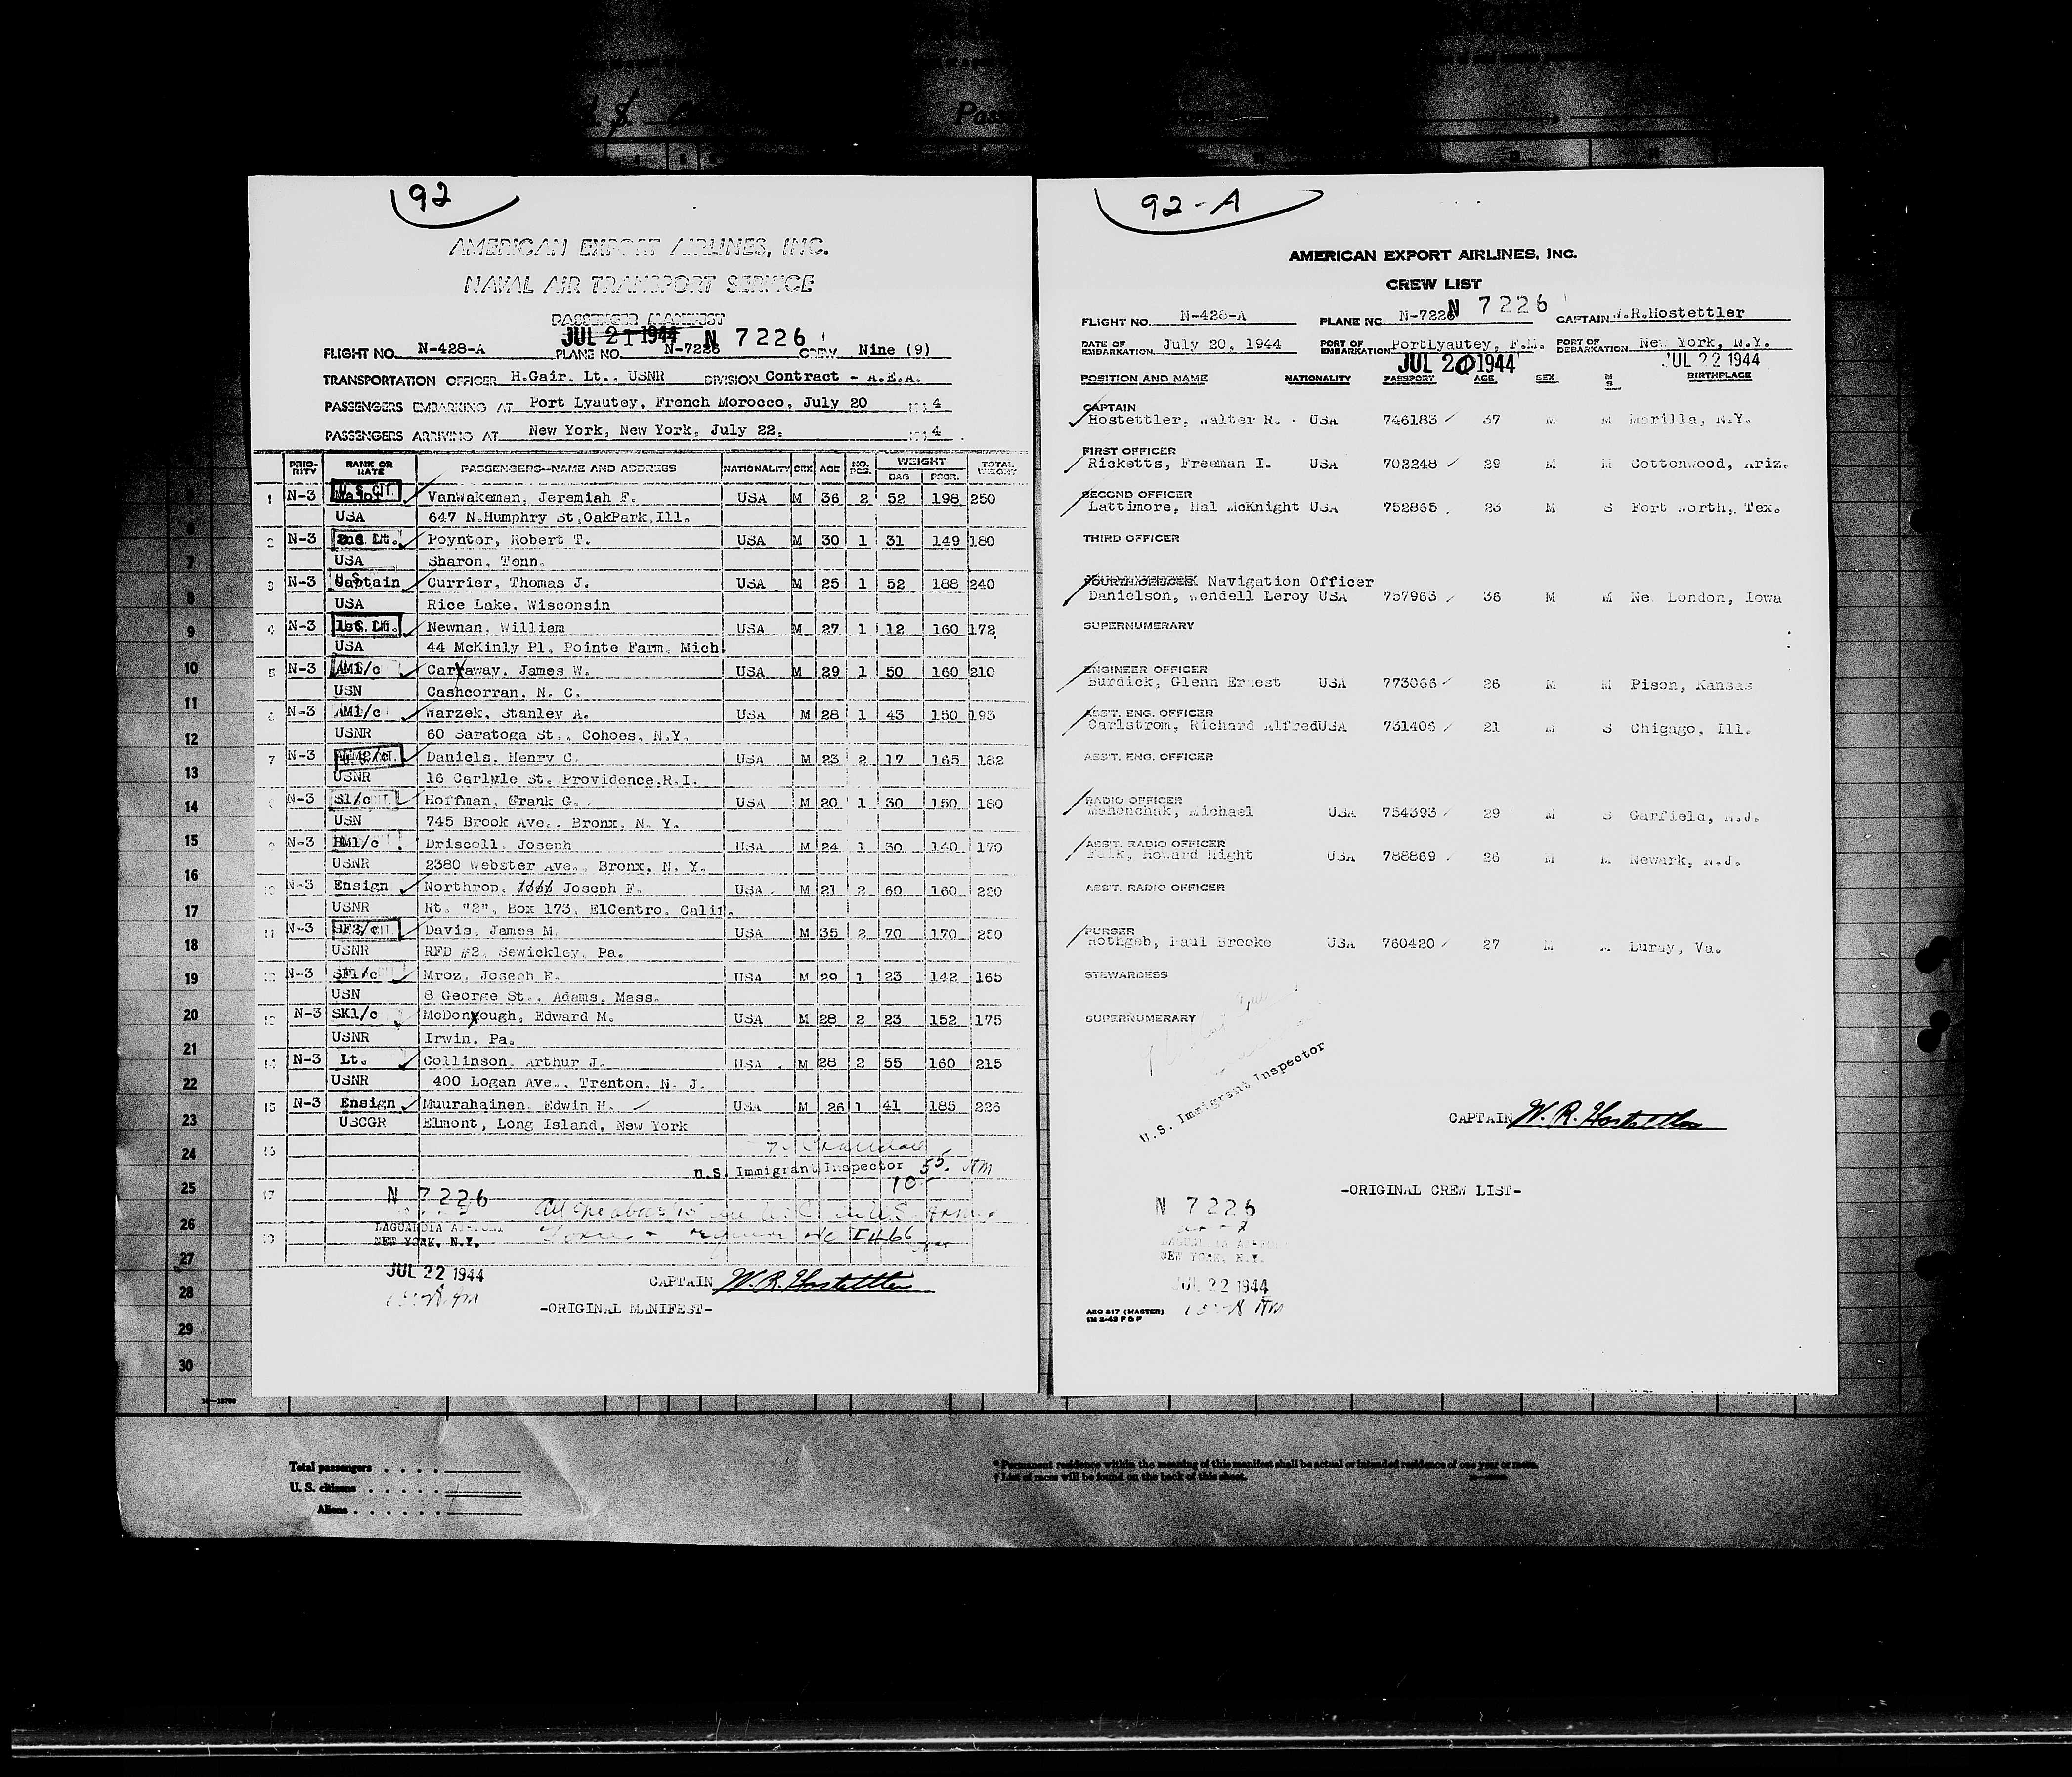 92
AMERICAN EXPORT AIRLINES, INC.
NAVAL AIR TRANSPORT SERVICE
PASSENGER MANIFEST
JUL 21 1944 N 7226
FLIGHT NO. N-428-A PLANE NO. N-7226 CREW Nine (9)
TRANSPORTATION OFFICER H.Gair. Lt., USNR DIVISION Contract - A.E.A.
PASSENGERS EMBARKING AT Port Lyautey, French Morocco, July 20 194 4
PASSENGERS ARRIVING AT New York, New York, July 22, 194 4
PRIO-RITY RANK OR RATE PASSENGERS—NAME AND ADDRESS NATIONALITY SEX AGE NO. PCS. WEIGHT BAG PSGR. TOTAL WEIGHT
1 N-3 Major VanWakeman, Jeremiah F. USA M 36 2 52 198 250
USA 647 N.Humphry St.OakPark,Ill.
2 N-3 2nd Lt. Poynter, Robert T. USA M 30 1 31 149 180
USA Sharon, Tenn.
3 N-3 Captain Currier, Thomas J. USA M 25 1 52 188 240
USA Rice Lake, Wisconsin
4 N-3 1st Lt. Newnan, William USA M 27 1 12 160 172
USA 44 McKinly Pl. Pointe Farm. Mich
5 N-3 AM1/c Carraway, James W. USA M 29 1 50 160 210
USN Cashcorran, N. C.
6 N-3 AM1/c Warzek, Stanley A. USA M 28 1 43 150 193
USNR 60 Saratoga St., Cohoes, N.Y.
7 N-3 Daniels, Henry C. USA M 23 2 17 165 182
USNR 16 Carlyle St. Providence,R.I.
8 N-3 S1/c Hoffman, Frank G. USA M 20 1 30 150 180
USN 745 Brook Ave., Bronx, N. Y.
9 N-3 BM1/c Driscoll, Joseph USA M 24 1 30 140 170
USNR 2380 Webster Ave., Bronx, N. Y.
10 N-3 Ensign Northrop, Joseph F. USA M 21 2 60 160 220
USNR Rt. "2", Box 173, ElCentro, Calif.
11 N-3 SF3/c Davis, James M. USA M 35 2 70 170 250
USNR RFD #2, Sewickley, Pa.
12 N-3 SF1/c Mroz, Joseph F. USA M 29 1 23 142 165
USN 8 George St., Adams, Mass.
13 N-3 SK1/c McDonough, Edward M. USA M 28 2 23 152 175
USNR Irwin, Pa.
14 N-3 Lt. Collinson, Arthur J. USA M 28 2 55 160 215
USNR 400 Logan Ave., Trenton, N. J.
15 N-3 Ensign Muurahainen, Edwin H. USA M 26 1 41 185 226
USCGR Elmont, Long Island, New York
16
U.S. Immigrant Inspector
17
N 7226
LAGUARDIA AIRPORT
NEW YORK, N.Y.
JUL 22 1944
CAPTAIN W. R. Hostettler
-ORIGINAL MANIFEST-
92-A
AMERICAN EXPORT AIRLINES, INC.
CREW LIST
N 7226
FLIGHT NO. N-428-A PLANE NO. N-7226 CAPTAIN W.R.Hostettler
DATE OF EMBARKATION July 20, 1944 PORT OF EMBARKATION PortLyautey, F.M. PORT OF DEBARKATION New York, N.Y.
JUL 20 1944 JUL 22 1944
POSITION AND NAME NATIONALITY PASSPORT AGE SEX M S BIRTHPLACE
CAPTAIN
Hostettler, Walter R. USA 746183 37 M M Marilla, N.Y.
FIRST OFFICER
Ricketts, Freeman I. USA 702248 29 M M Cottonwood, Ariz.
SECOND OFFICER
Lattimore, Hal McKnight USA 752865 23 M S Fort Worth, Tex.
THIRD OFFICER
Navigation Officer
Danielson, Wendell Leroy USA 757963 36 M M New London, Iowa
SUPERNUMERARY
ENGINEER OFFICER
Burdick, Glenn Ernest USA 773066 26 M M Pison, Kansas
ASST. ENG. OFFICER
Carlstrom, Richard Alfred USA 731406 21 M S Chigago, Ill.
ASST. ENG. OFFICER
RADIO OFFICER
Mahonchak, Michael USA 754393 29 M S Garfield, N.J.
ASST. RADIO OFFICER
Falk, Howard Hight USA 788869 26 M M Newark, N.J.
ASST. RADIO OFFICER
PURSER
Rothgeb, Paul Brooke USA 760420 27 M M Luray, Va.
STEWARDESS
SUPERNUMERARY
U.S. Immigrant Inspector
CAPTAIN W. R. Hostettler
-ORIGINAL CREW LIST-
N 7226
NEW YORK, N.Y.
JUL 22 1944
AEO 317 (MASTER)
1M 2-43 P & P
6
7
8
9
10
11
12
13
14
15
16
17
18
19
20
21
22
23
24
25
26
27
28
29
30
Total passengers
U. S. citizens
Aliens
* Permanent residence within the meaning of this manifest shall be actual or intended residence of one year or more.
† List of races will be found on the back of this sheet.